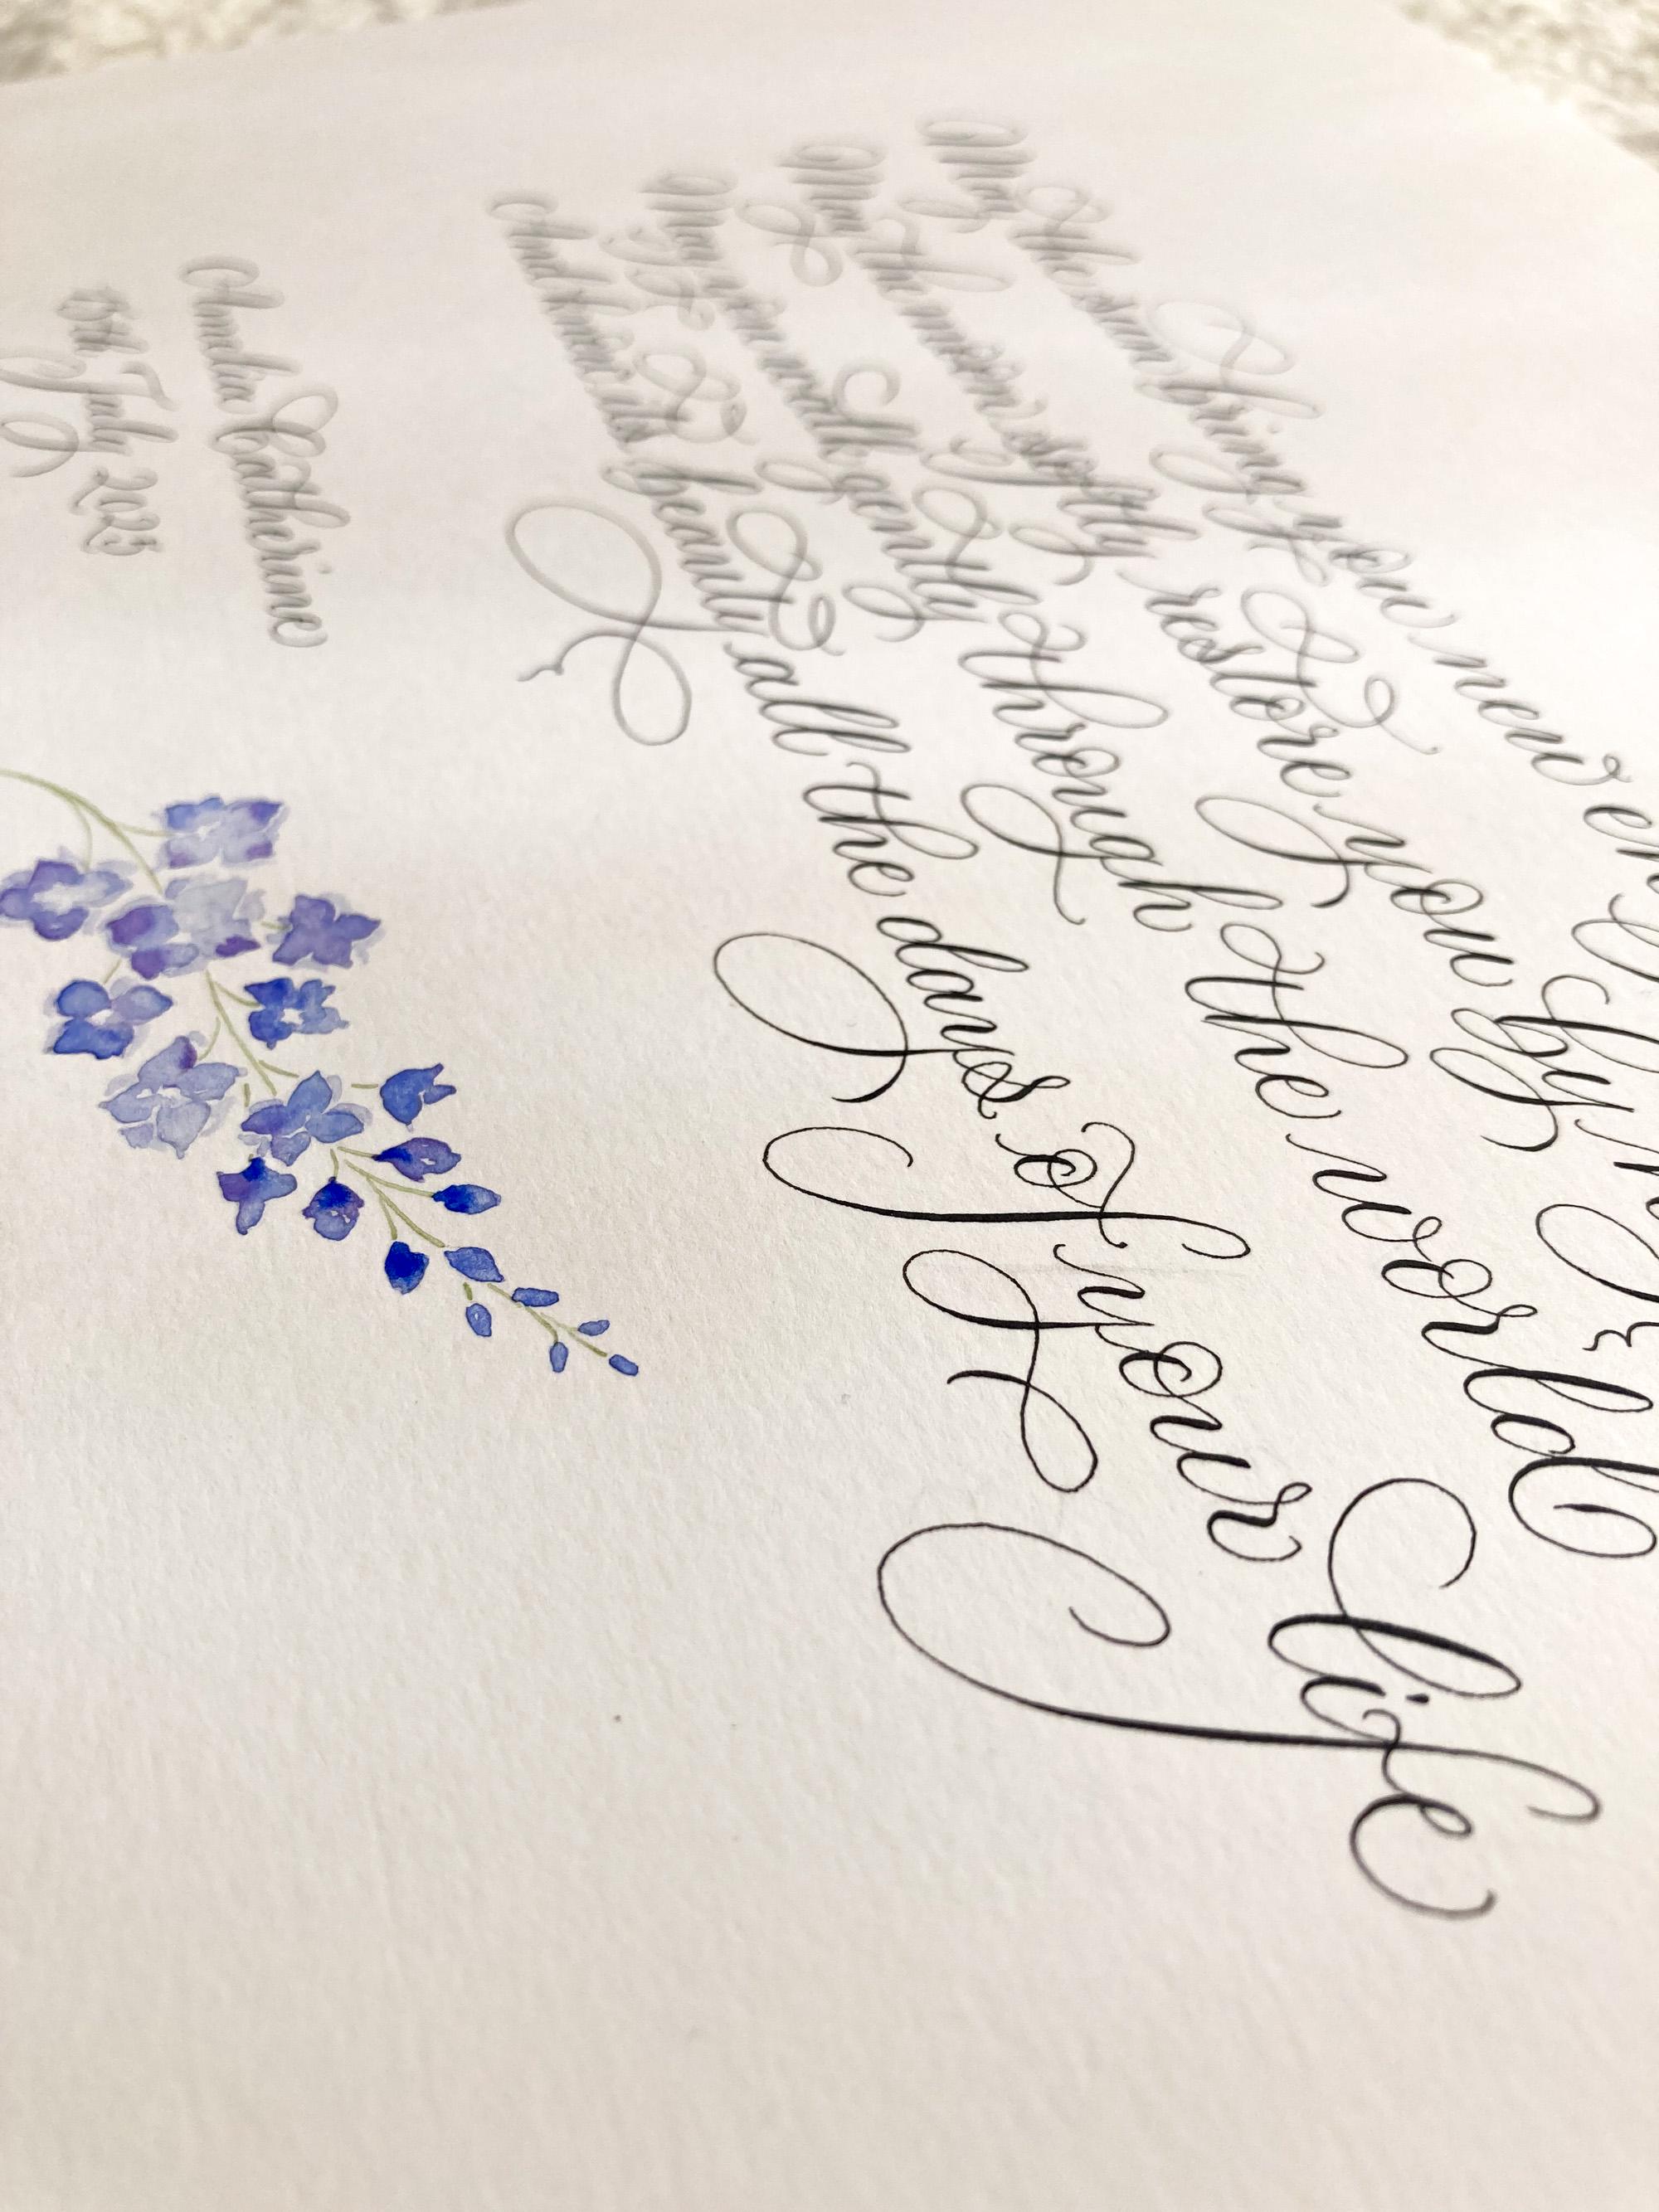 May the sun bring you new en
May the moon softly restore you by n
May you walk gently through the world
And know its beauty all the days of your life
Amelia Catherine
8th July